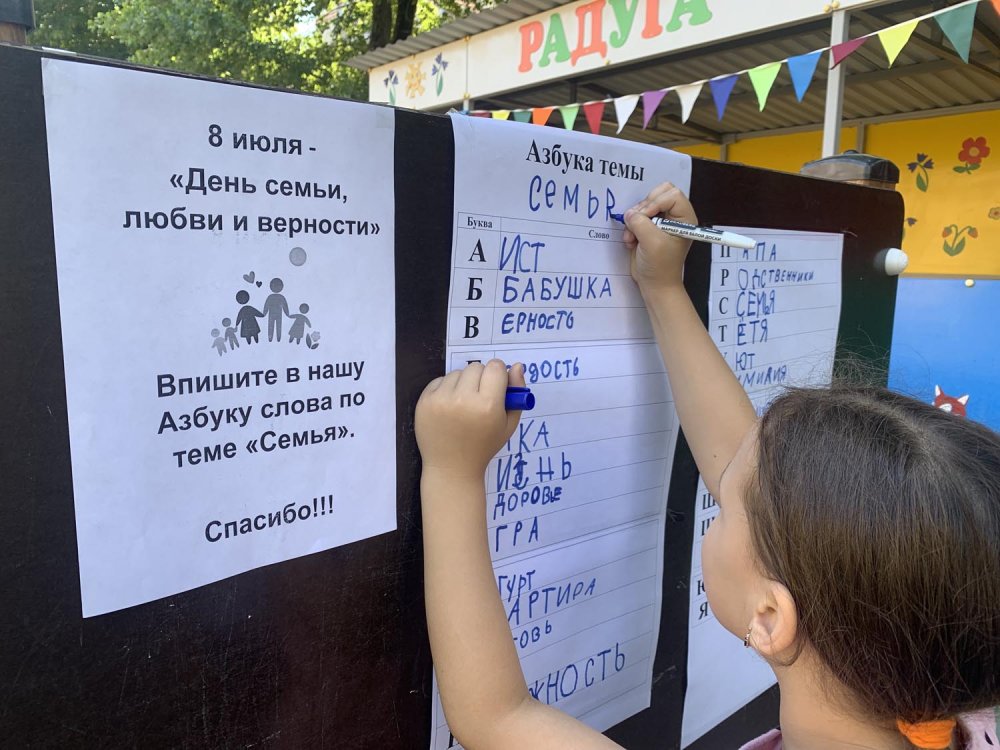 РАДУГА
8 июля -
«День семьи,
любви и верности»
Впишите в нашу
Азбуку слова по
теме «Семья».
Спасибо!!!
Азбука темы
СЕМЬЯ
Буква Слово
А ИСТ
Б БАБУШКА
В ЕРНОСТЬ
ДОСТЬ
КА
ДОРОВЬЕ
ГРА
ГУРТ
АРТИРА
ОВЬ
ЖНОСТЬ
МАРКЕР ДЛЯ БЕЛОЙ ДОСКИ
П АПА
Р ОДСТВЕННИКИ
С СЕМЬЯ
Т ЁТЯ
ЮТ
АМИЛИЯ
Ю
Я